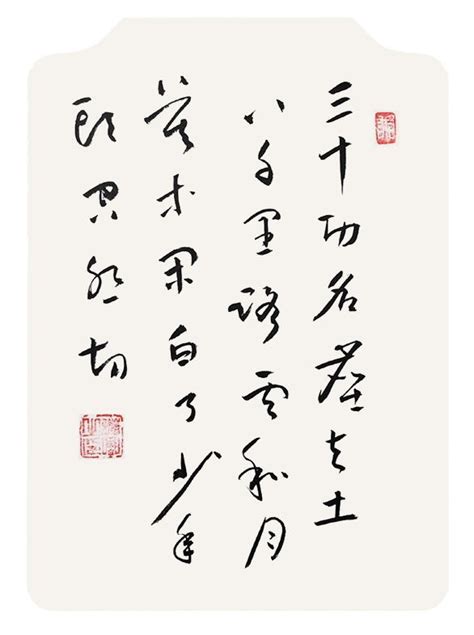 三十功名塵与土
八千里路雲和月
莫等閑白了少年
頭空悲切